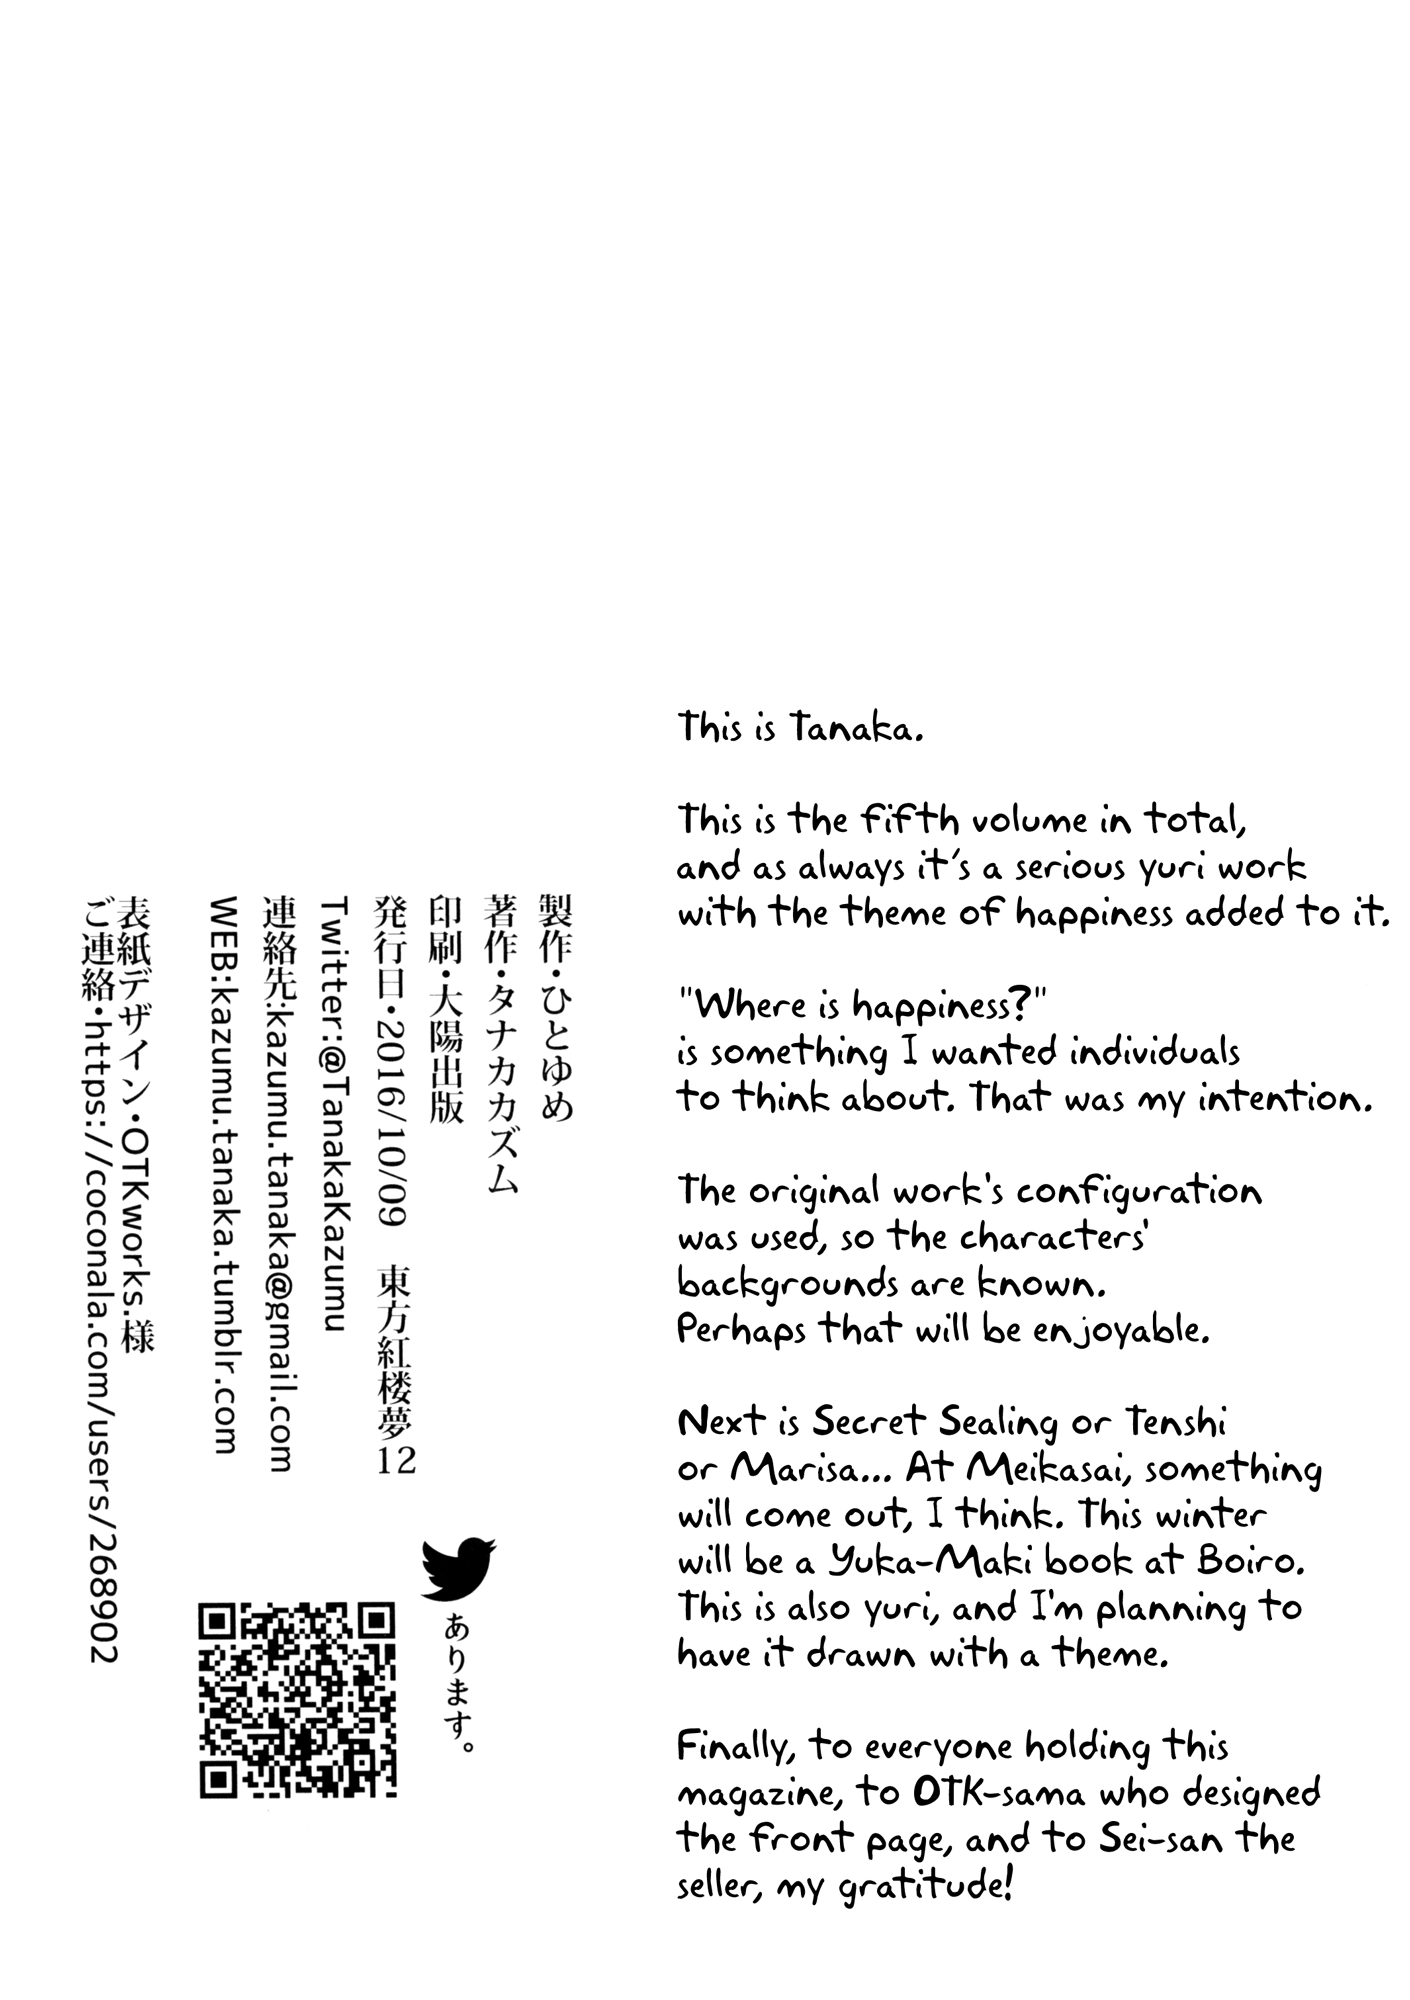 This is Tanaka.
This is the fifth volume in total,
and as always it's a serious yuri work
with the theme of happiness added to it.
"Where is happiness?"
is something I wanted individuals
to think about. That was my intention.
The original work's configuration
was used, so the characters'
backgrounds are known.
Perhaps that will be enjoyable.
Next is Secret Sealing or Tenshi
or Marisa... At Meikasai, something
will come out, I think. This winter
will be a Yuka-Maki book at Boiro.
This is also yuri, and I'm planning to
have it drawn with a theme.
Finally, to everyone holding this
magazine, to OTK-sama who designed
the front page, and to Sei-san the
seller, my gratitude!
製作・ひとゆめ
著作・タナカカズム
印刷・大陽出版
発行日・2016/10/09 東方紅楼夢12
Twitter:@TanakaKazumu
連絡先:kazumu.tanaka@gmail.com
WEB:kazumu.tanaka.tumblr.com
表紙デザイン・OTKworks.様
ご連絡・https://coconala.com/users/268902
あります。